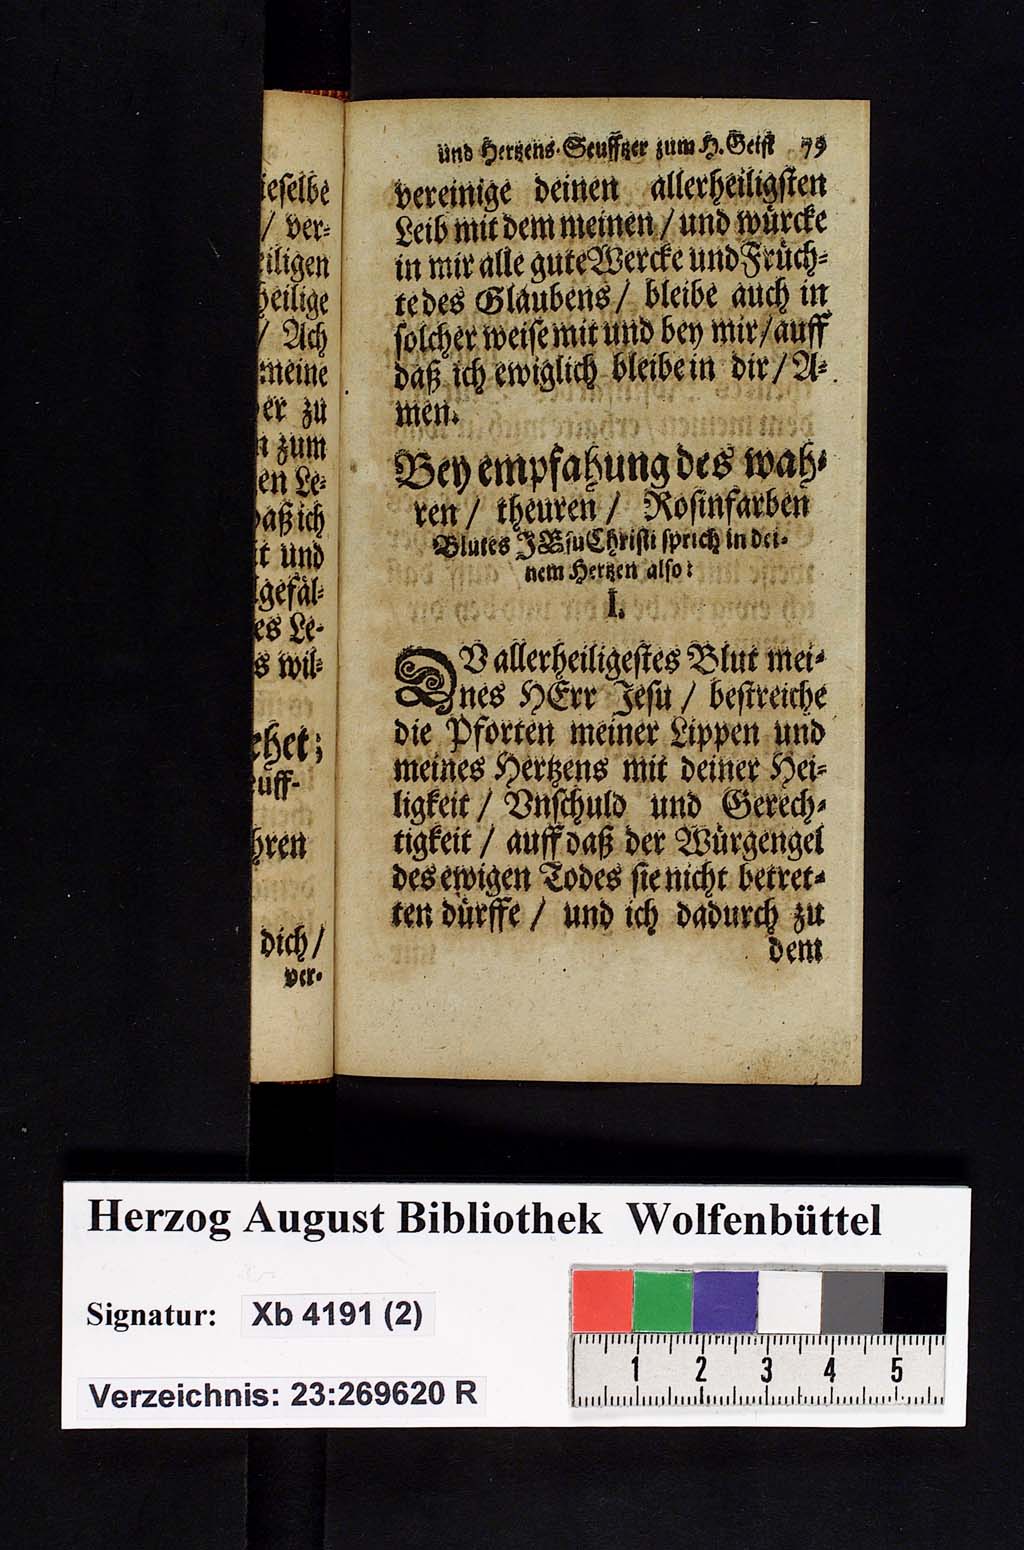 ieselbe
/ ver-
eiligen
heilige
/ Ach
meine
er zu
n zum
en Le-
daß ich
it und
lgefäl-
es Le-
s wil-
ehet;
euff-
hren
dich /
ver-
und Hertzens-Seufftzer zum H. Geist 79
vereinige deinen allerheiligsten
Leib mit dem meinen / und würcke
in mir alle gute Wercke und Früch-
te des Glaubens / bleibe auch in
solcher weise mit und bey mir / auff
daß ich ewiglich bleibe in dir / A-
men.
Bey empfahung des wah-
ren / theuren / Rosinfarben
Blutes JEsu Christi sprich in dei-
nem Hertzen also:
I.
DV allerheiligestes Blut mei-
nes HErr Jesu / bestreiche
die Pforten meiner Lippen und
meines Hertzens mit deiner Hei-
ligkeit / Vnschuld und Gerech-
tigkeit / auff daß der Würgengel
des ewigen Todes sie nicht betret-
ten dürffe / und ich dadurch zu
dem
Herzog August Bibliothek Wolfenbüttel
Signatur: Xb 4191 (2)
Verzeichnis: 23:269620 R
1 2 3 4 5